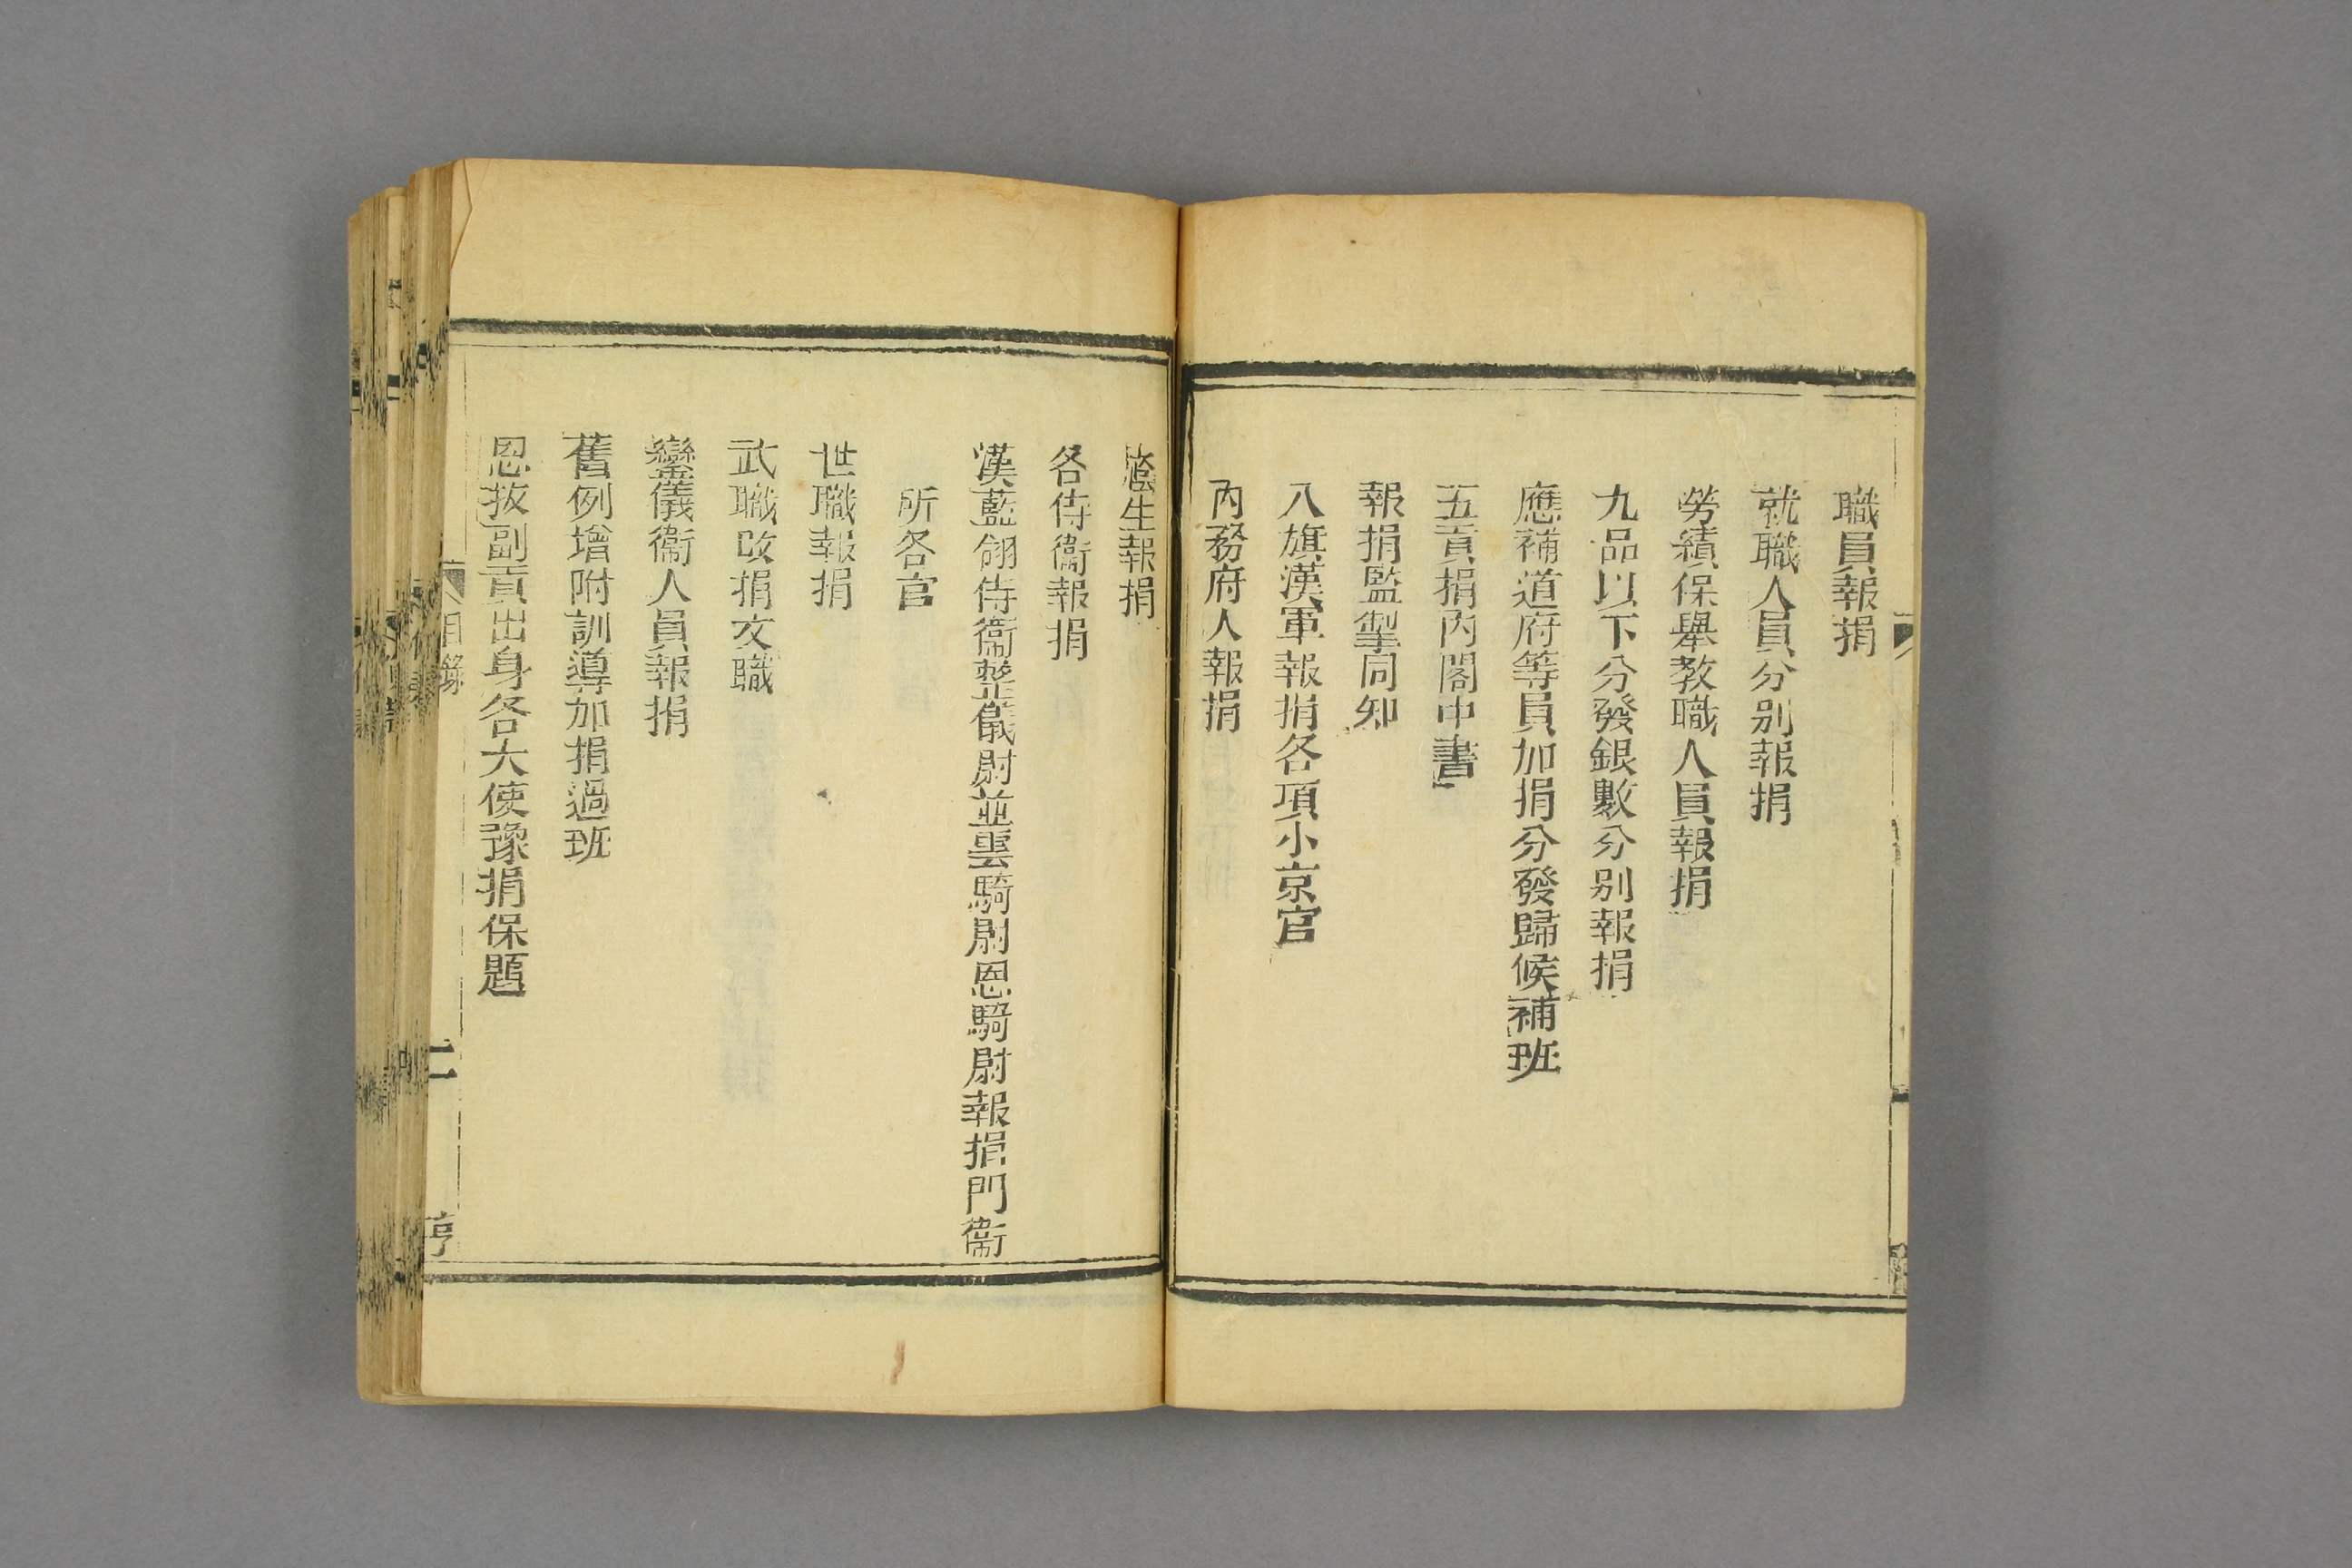 職員報捐
就職人員分别報捐
勞績保舉教職人員報捐
九品以下分發銀數分别報捐
應補道府等員加捐分發歸候補班
五貢捐內閣中書
報捐監掣同知
八旗漢軍報捐各項小京官
內務府人報捐
廕生報捐
各侍衞報捐
漢藍翎侍衞整儀尉並雲騎尉恩騎尉報捐門衞
所各官
世職報捐
武職改捐文職
鑾儀衞人員報捐
舊例增附訓導加捐過班
恩拔副貢出身各大使豫捐保題
目錄
二
亨